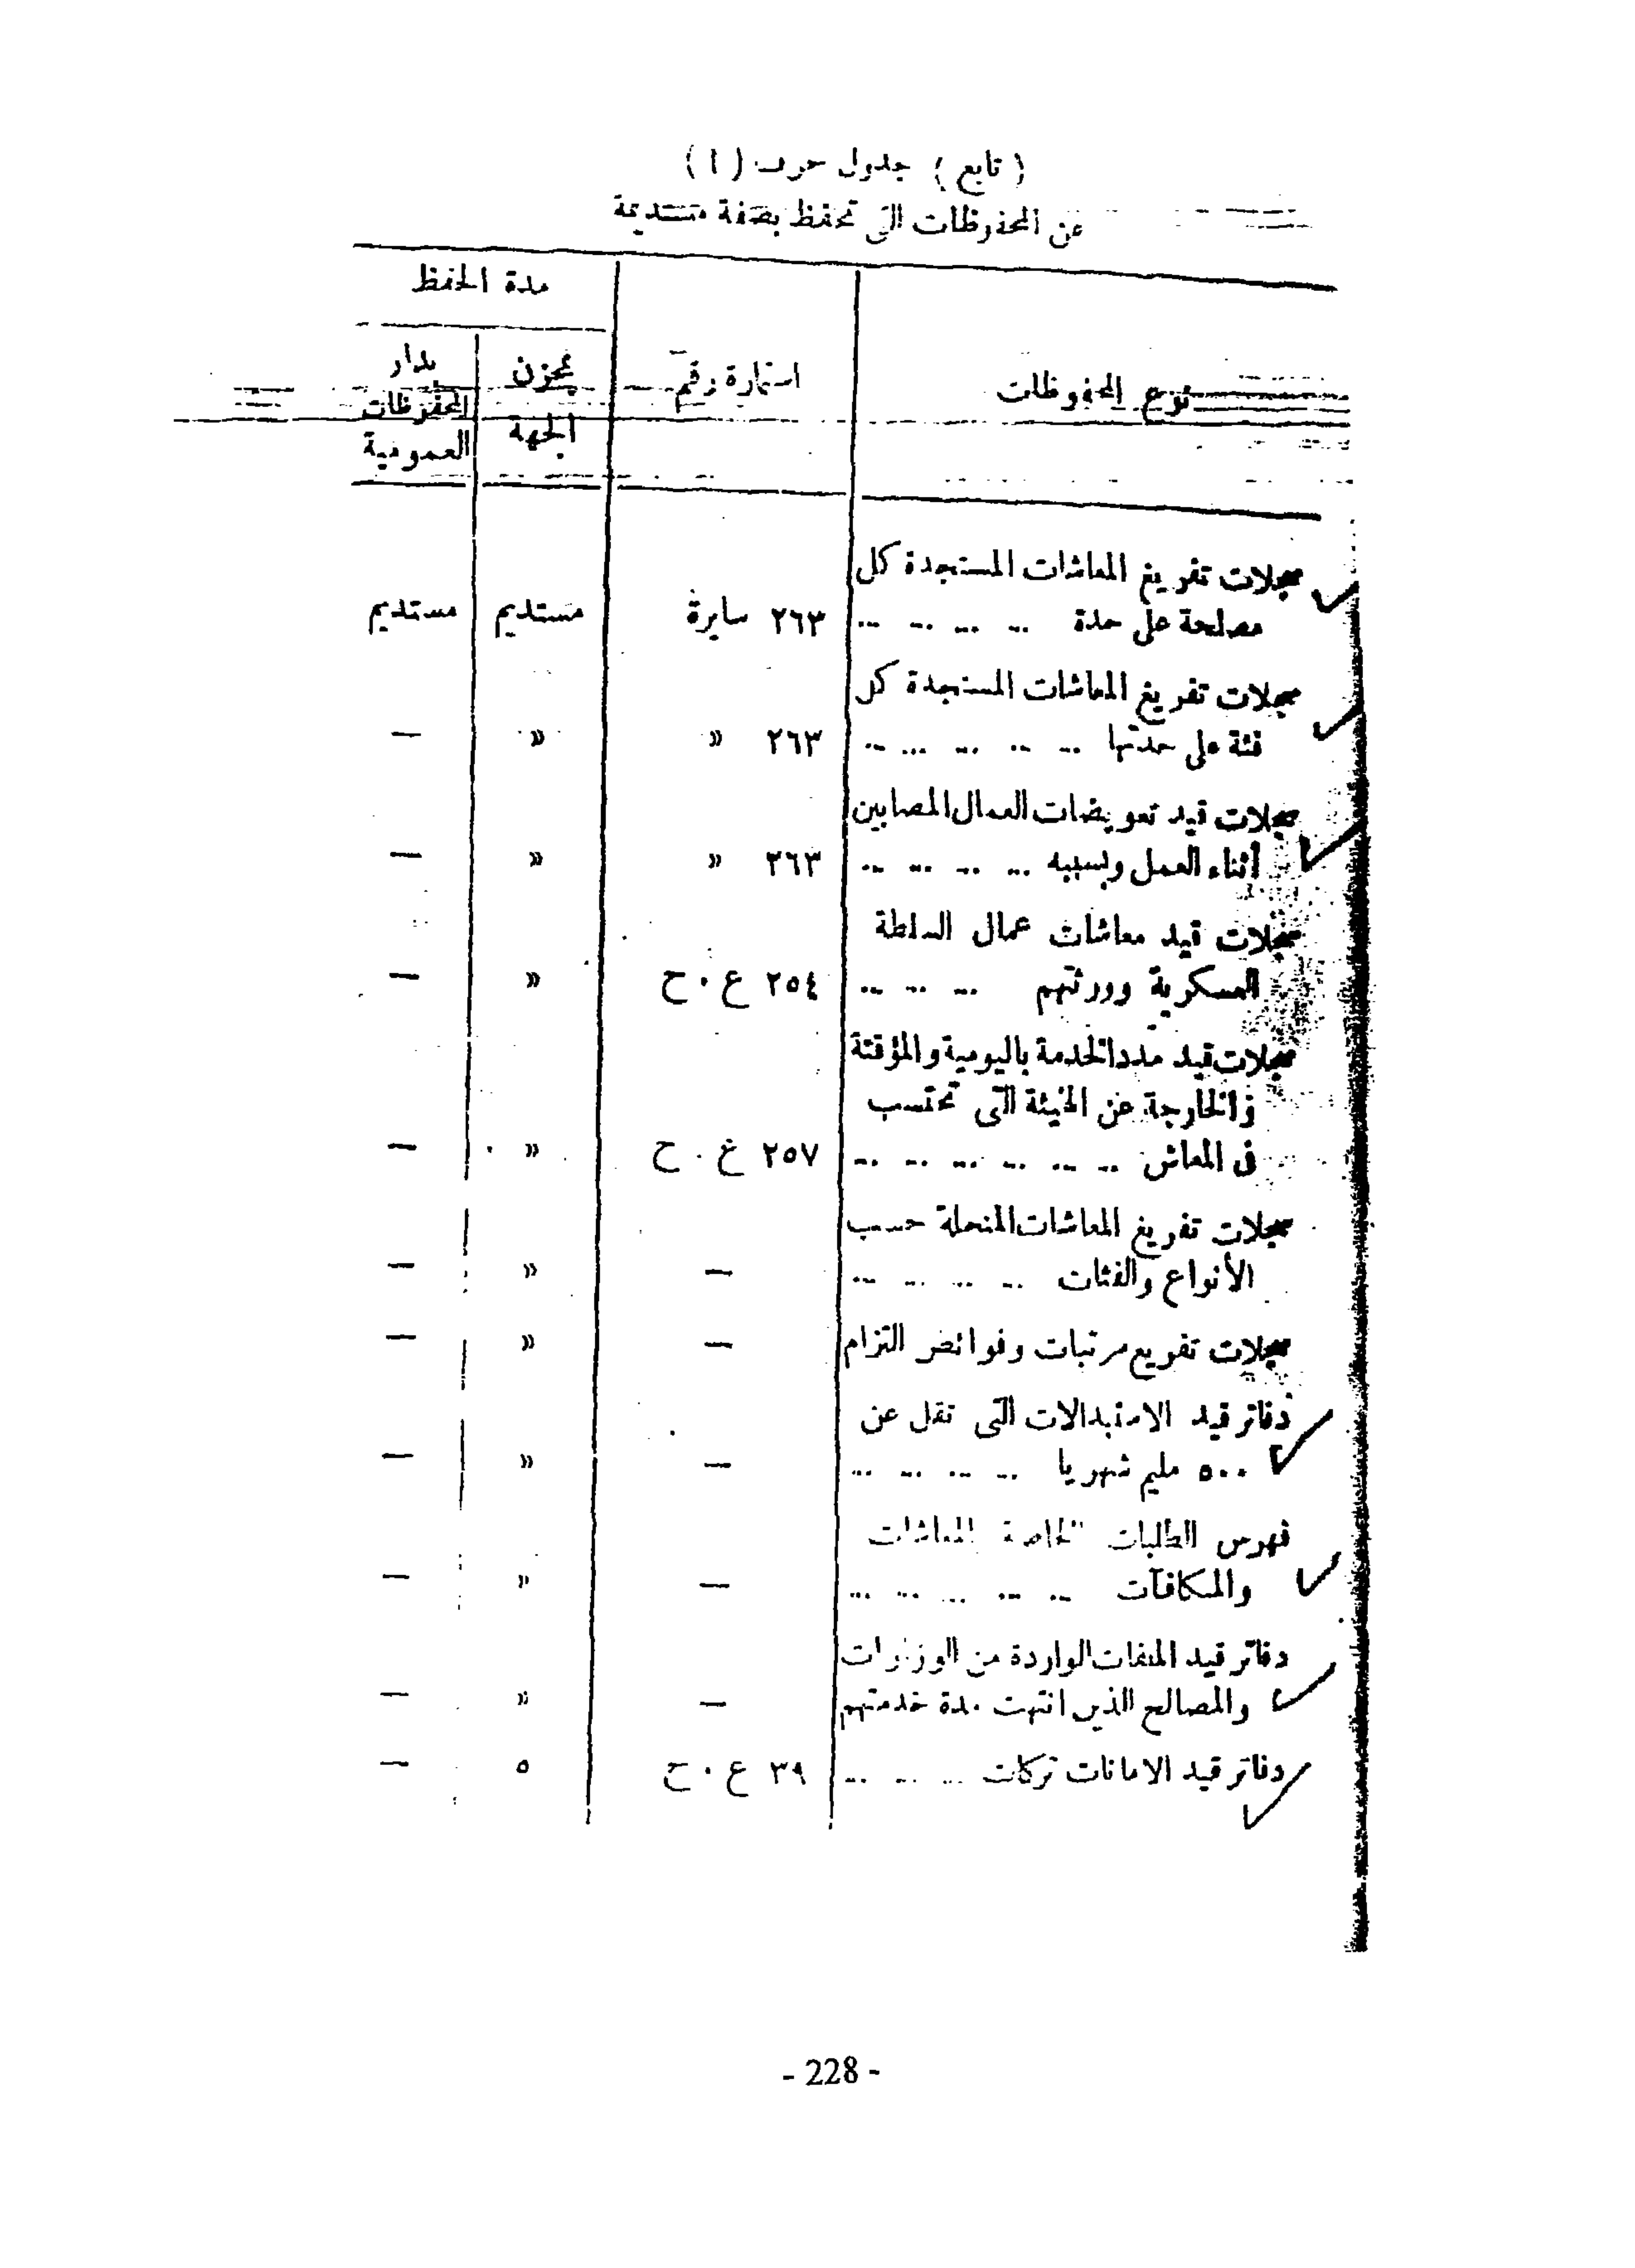 ( تابع ) جدول حرف ( ا )
عن المحفوظات التى تحفظ بصفة مستديمة
مدة الحفظ
نوع المحفوظات استمارة رقم بمخزن الجهة بدار المحفوظات العمومية
سجلات تفريغ المعاشات المستجدة كل
مصلحة على حدة ... ... ... ... ٢٦٣ سايرة مستديم مستديم
سجلات تفريغ المعاشات المستجدة كل
فئة على حدتها ... ... ... ... ... ٢٦٣ » » —
سجلات قيد تعويضات العمال المصابين
أثناء العمل وبسببه ... ... ... ... ٢٦٣ » » —
سجلات قيد معاشات عمال السلطة
العسكرية وورثتهم ... ... ... ٢٥٤ ع . ح » —
سجلات قيد مدد الخدمة باليومية والمؤقتة
والخارجة عن الهيئة التى تحتسب
فى المعاش ... ... ... ... ... ... ٢٥٧ ع . ح » —
سجلات تفريغ المعاشات المنحلة حسب
الأنواع والفئات ... ... ... ... — » —
سجلات تفريع مرتبات وفوائض التزام — » —
دفاتر قيد الاستبدالات التى تقل عن
٥٠٠ مليم شهريا ... ... ... ... — » —
فهرس الطلبات الخاصة بالمعاشات
والمكافآت ... ... ... ... ... — » —
دفاتر قيد الملفات الواردة من الوزارات
والمصالح الذين انتهت مدة خدمتهم — » —
دفاتر قيد الامانات تركات ... ... ... ٣٩ ع . ح ٥ —
- 228 -